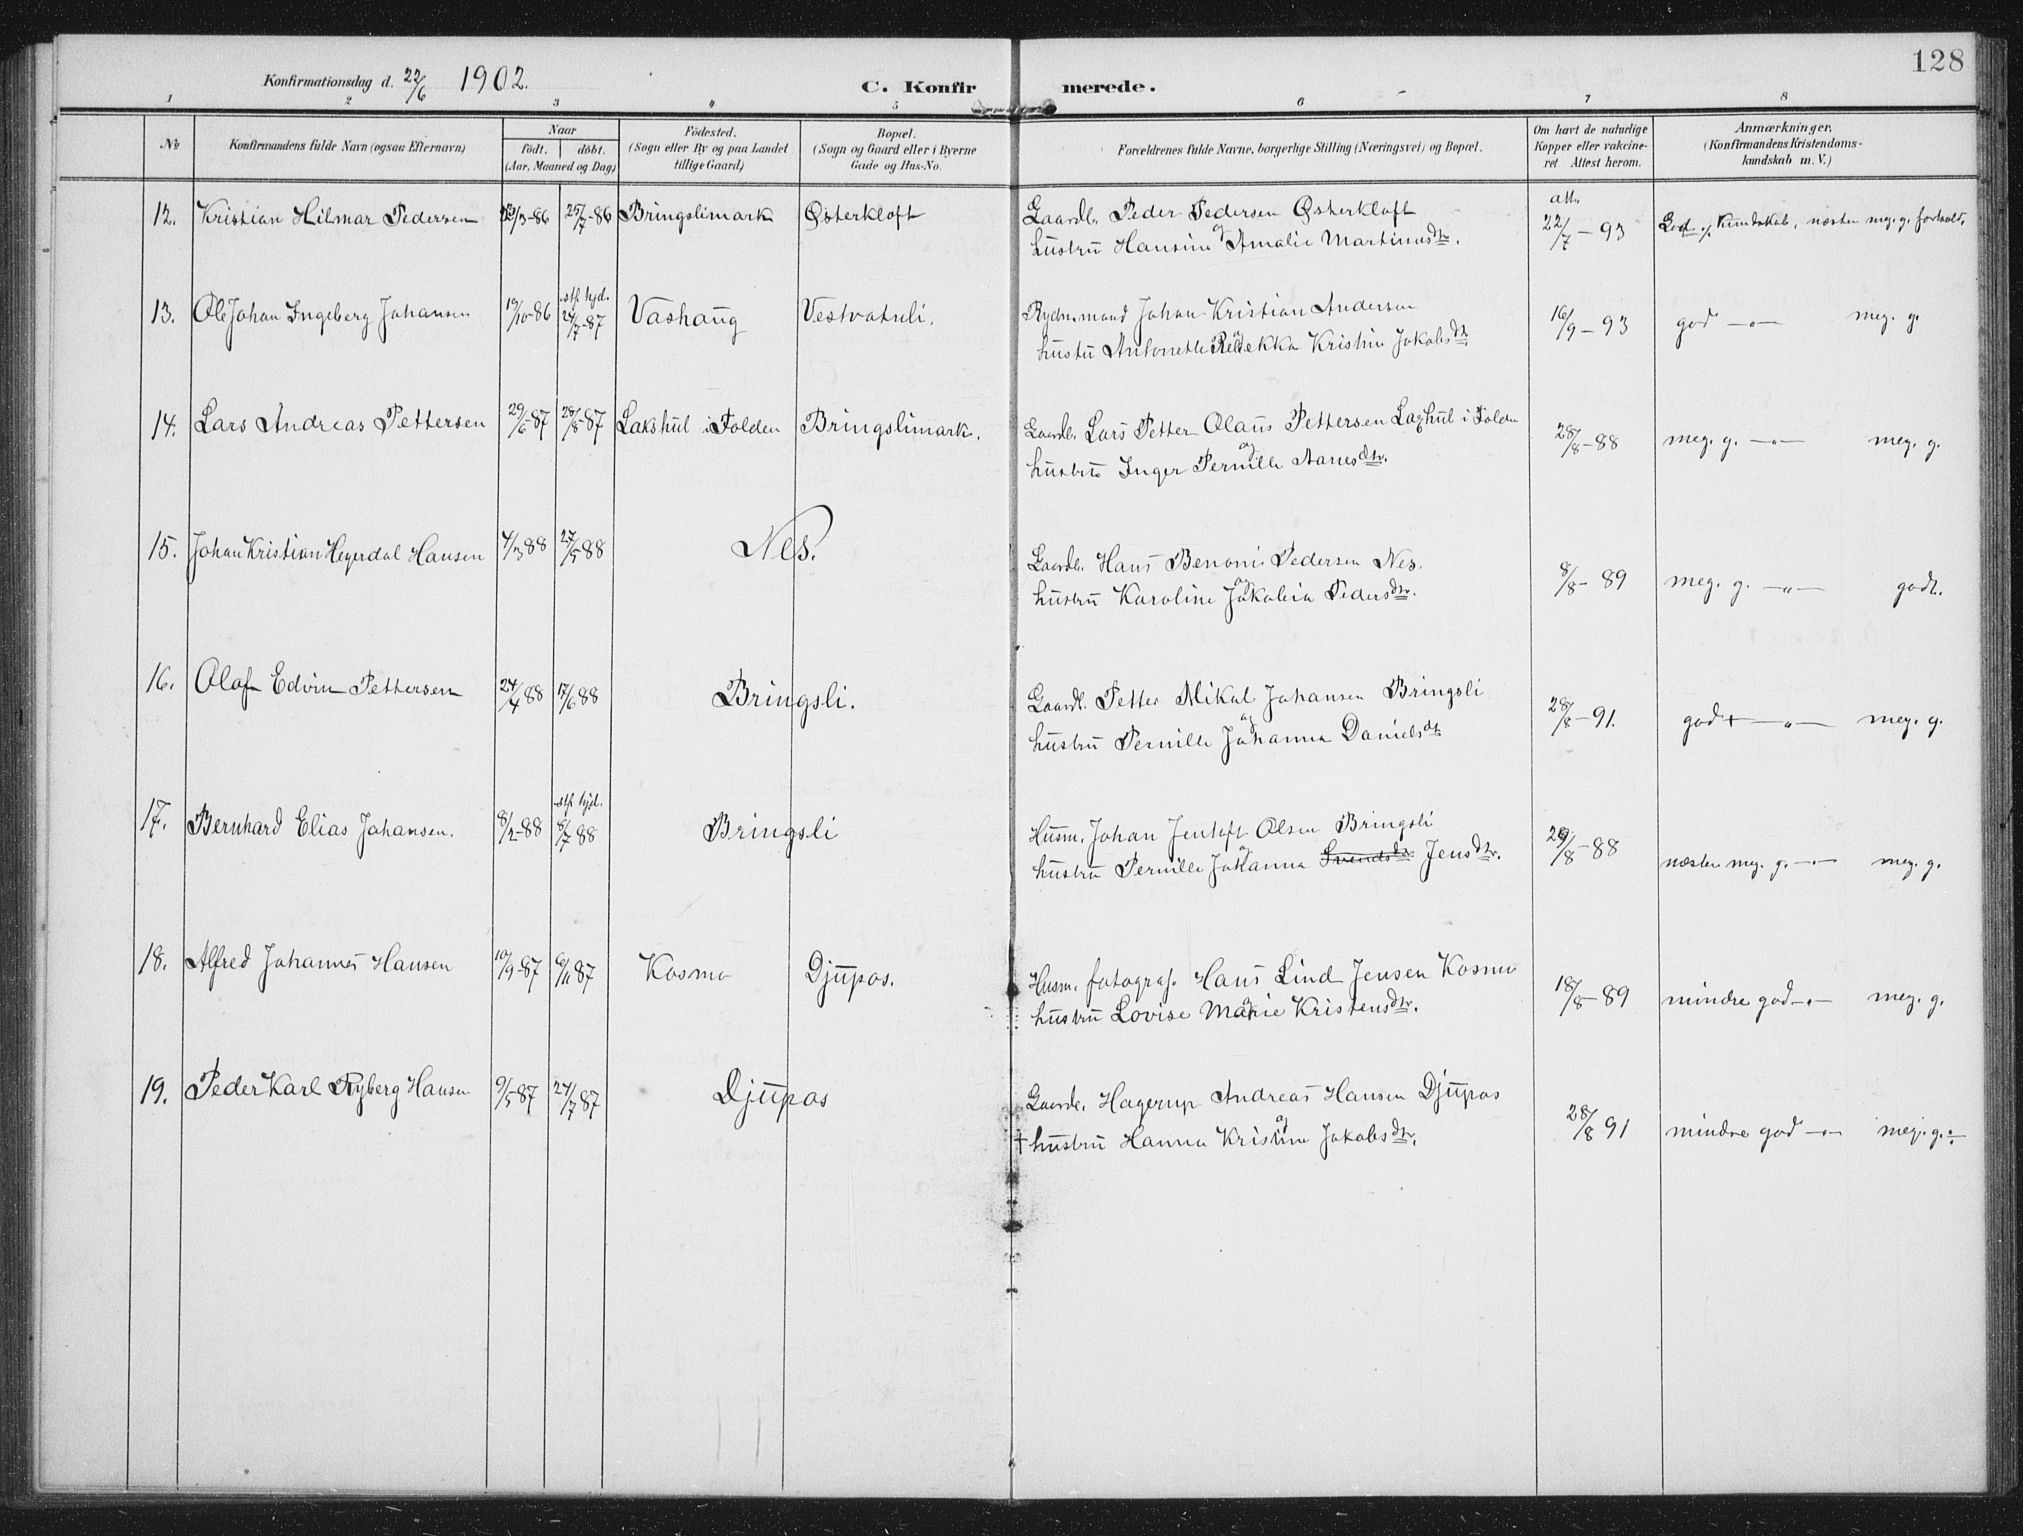 128
Konfirmationsdag d. 22/6 1902.
C. Konfirmerede.
1 2 3 4 5 6 7 8
No
Konfirmandens fulde Navn (ogsaa Efternavn)
Naar
født. døbt.
(Aar, Maaned og Dag)
Fødested.
(Sogn eller By og paa Landet
tillige Gaard)
Bopæl.
(Sogn og Gaard eller i Byerne
Gade og Hus-No.
Forældrenes fulde Navne, borgerlige Stilling (Næringsvei) og Bopæl.
Om havt de naturlige
Kopper eller vakcine-
ret Attest herom.
Anmærkninger.
(Konfirmandens Kristendoms-
kundskab m. V.)
12. Kristian Hilmar Pedersen /3-86 25/7-86 Bringslimark Østerkloft
Gaardb. Peder Pedersen Østerkloft
og
hustru Hansine Amalie Martinusdtr.
att.
22/7-93
God Kundskab, næsten meg. g. forhold.
13. Ole Johan Ingeberg Johansen 19/10-86 stf. hjd. 24/7-87 Vashaug Vestvatnli.
Rydn.mand Johan Kristian Andersen
og
hustru Antonette Rebekka Kristine Jakobsdtr.
16/9-93
god -"- meg. g.
14. Lars Andreas Pettersen 29/6-87 28/8-87 Lakshul i Folden Bringslimark.
Gaardb. Lars Petter Olaus Pettersen Laxhul i Folden
og
hustru Inger Pernille Aanesdtr.
28/8-88
meg. g. -"- meg. g.
15. Johan Kristian Heyerdal Hansen 4/3 88 27/5 88 Nes.
Gaardb. Hans Benoni Pedersen Nes.
og
hustru Karoline Jakobia Pedersdtr.
8/8-89
meg. g. -"- godt.
16. Olaf Edvin Pettersen 24/4 88 17/6 88 Bringsli.
Gaardb. Petter Mikal Johansen Bringsli
og
hustru Pernille Johanna Danielsdtr
28/8-91.
godt -"- meg. g.
17. Bernhard Elias Johansen. 8/2-88 stf. hjd. 8/7 88 Bringsli
Husm. Johan Jentoft Olsen Bringsli
og
hustru Pernille Johanna Svendsdtr Jensdtr.
29/8-88
næsten meg. g. -"- meg. g.
18. Alfred Johannes Hansen 10/9-87 6/11 87 Kosmo Djupos.
Husm. fotograf. Hans Lind Jensen Kosmo
og
hustru Lovise Marie Kristensdtr.
18/8-89
mindre god -"- meg. g.
19. Peder Karl Ryberg Hansen 9/5 87 24/7 87 Djupos
Gaardb. Hagerup Andreas Hansen Djupos
og
† hustru Hanna Kristine Jakobsdtr.
28/8 91
mindre god -"- meg. g.